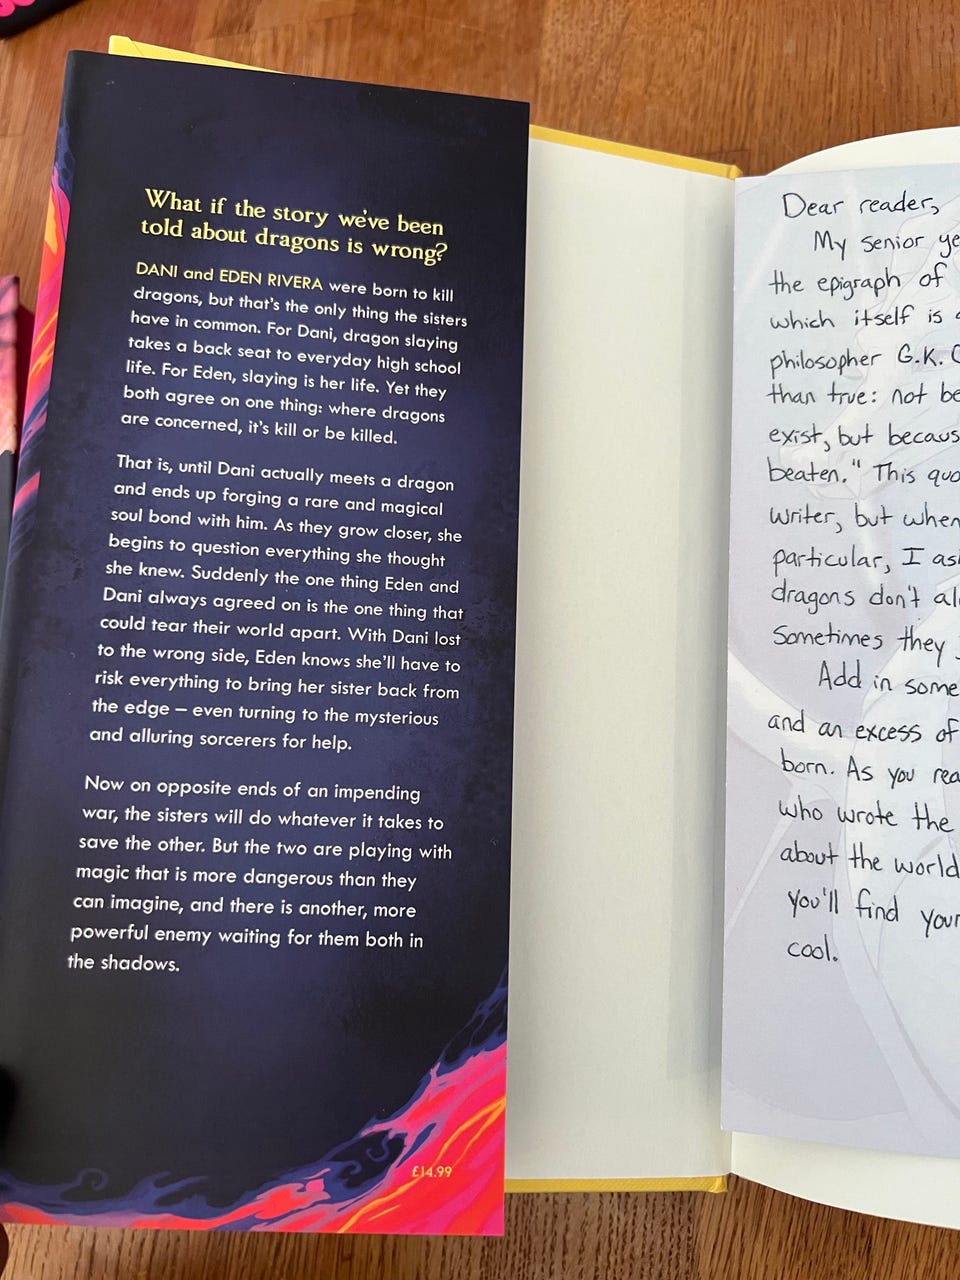 What if the story we've been
told about dragons is wrong?
DANI and EDEN RIVERA were born to kill
dragons, but that's the only thing the sisters
have in common. For Dani, dragon slaying
takes a back seat to everyday high school
life. For Eden, slaying is her life. Yet they
both agree on one thing: where dragons
are concerned, it's kill or be killed.
That is, until Dani actually meets a dragon
and ends up forging a rare and magical
soul bond with him. As they grow closer, she
begins to question everything she thought
she knew. Suddenly the one thing Eden and
Dani always agreed on is the one thing that
could tear their world apart. With Dani lost
to the wrong side, Eden knows she'll have to
risk everything to bring her sister back from
the edge – even turning to the mysterious
and alluring sorcerers for help.
Now on opposite ends of an impending
war, the sisters will do whatever it takes to
save the other. But the two are playing with
magic that is more dangerous than they
can imagine, and there is another, more
powerful enemy waiting for them both in
the shadows.
£14.99
Dear reader,
My senior
the epigraph of
which itself is
philosopher G.K.
than true: not
exist, but
beaten." This
writer, but when
particular, I
dragons don't
Sometimes they
Add in some
and an excess of
born. As you
who wrote the
about the world
you'll find
cool.